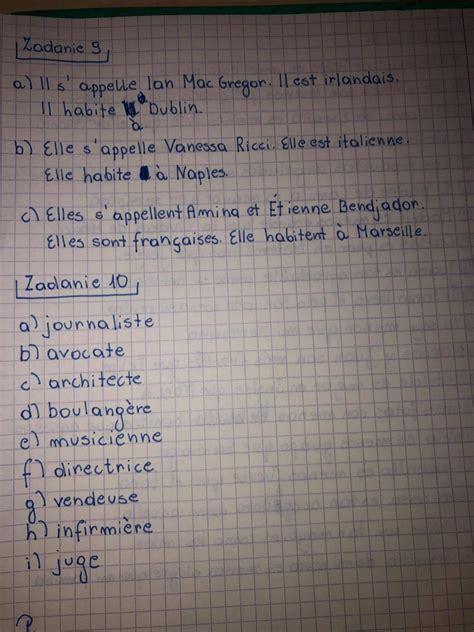 Zadanie 9
a) Il s'appelle Ian Mac Gregor. Il est irlandais.
Il habite à Dublin.
b) Elle s'appelle Vanessa Ricci. Elle est italienne.
Elle habite à Naples.
c) Elles s'appellent Amina et Étienne Bendjador.
Elles sont françaises. Elle habitent à Marseille.
Zadanie 10
a) journaliste
b) avocate
c) architecte
d) boulangère
e) musicienne
f) directrice
g) vendeuse
h) infirmière
i) juge